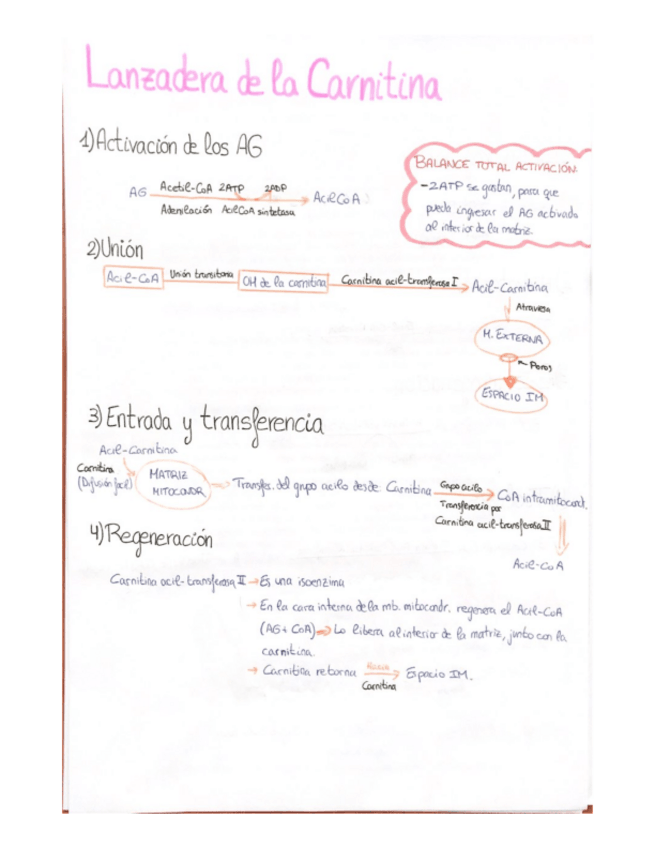 Lanzadera de la Carnitina
1) Activación de los AG
BALANCE TOTAL ACTIVACIÓN:
-2ATP se gastan, para que
pueda ingresar el AG activado
al interior de la matriz.
AG Acetil-CoA 2ATP 2ADP AcilCoA
Adenilación AcilCoA sintetasa
2) Unión
Acil-CoA Unión transitoria OH de la carnitina Carnitina acil-transferasa I Acil-Carnitina
Atraviesa
M. EXTERNA
Poros
ESPACIO IM
3) Entrada y transferencia
Acil-Carnitina
Carnitina
(Difusión facil)
MATRIZ
MITOCONDR.
Transfer. del grupo acilo desde Carnitina Grupo acilo CoA intramitocond.
Transferencia por
Carnitina acil-transferasa II
Acil-CoA
4) Regeneración
Carnitina acil-transferasa II → Es una isoenzima
→ En la cara interna de la mb. mitocondr. regenera el Acil-CoA
(AG + CoA) → Lo libera al interior de la matriz, junto con la
carnitina.
→ Carnitina retorna Espacio IM.
Carnitina